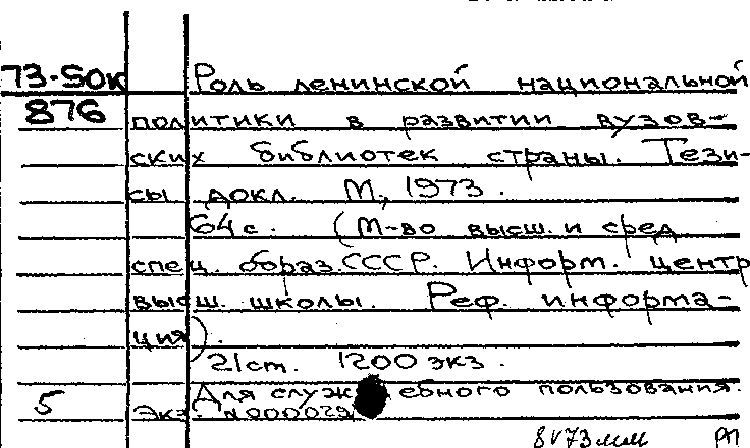 73-50к Роль ленинской национальной
876 политики в развитии вузов-
ских библиотек страны. Тези-
сы докл. М, 1973.
64 с. (М-во высш. и сред
спец. образ. СССР. Информ. центр
высш. школы. Реф. информа-
ция).
21 cm. 1200 экз.
Для служебного пользования.
5 Экз. N 000029